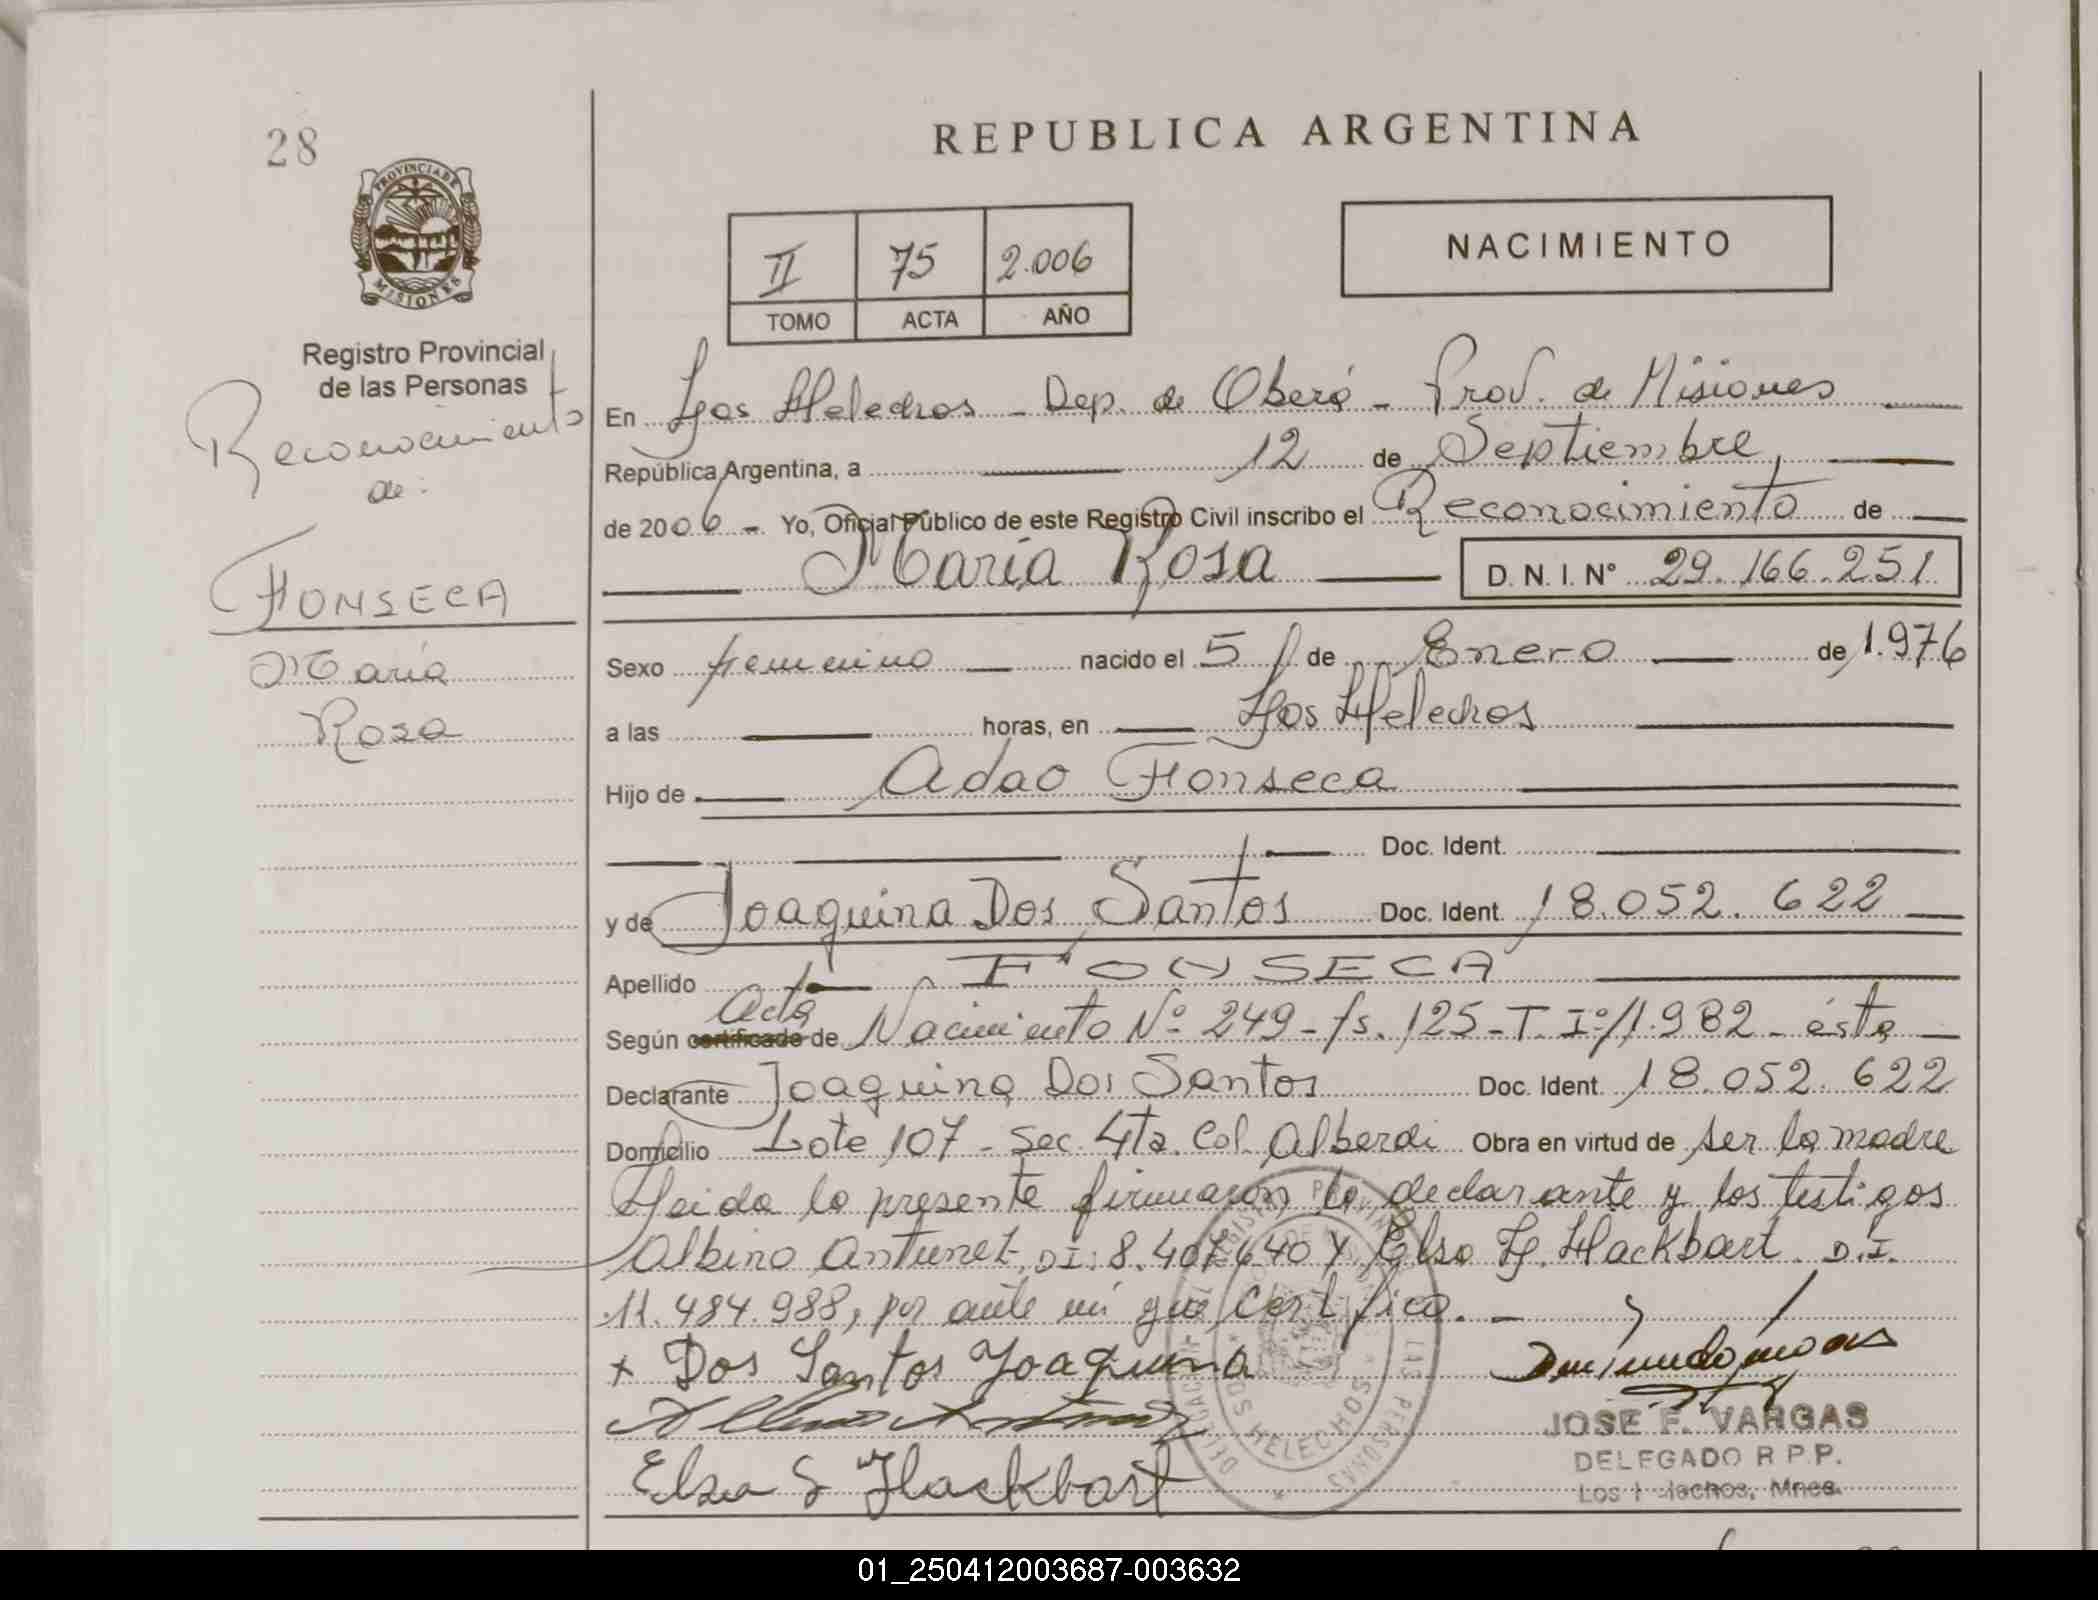 28
REPUBLICA ARGENTINA
PROVINCIA DE MISIONES
II 75 2.006
TOMO ACTA AÑO
NACIMIENTO
Registro Provincial
de las Personas
Reconocimiento
de:
FONSECA
Maria
Rosa
En Los Helechos - Dep. de Oberá - Prov. de Misiones
República Argentina, a 12 de Septiembre,
de 2006 - Yo, Oficial Público de este Registro Civil inscribo el Reconocimiento de
Maria Rosa D. N. I. N° 29.166.251
Sexo femenino nacido el 5 de Enero de 1.976
a las horas, en Los Helechos
Hijo de Adao Fonseca
Doc. Ident.
y de Joaquina Dos Santos Doc. Ident. 18.052.622
Apellido FONSECA
Acta
Según certificado de Nacimiento Nº 249 - fs. 125 - T. Iº/1.982 - ésta
Declarante Joaquina Dos Santos Doc. Ident. 18.052.622
Domicilio Lote 107 - Sec. 4ta. Col. Alberdi Obra en virtud de ser la madre
Leida la presente firmaron la declarante y los testigos
Albino Antunez, DI: 8.407.640 y Elsa L. Hackbart. D.I.
11.484.988, por ante mi que certifico. -
+ Dos Santos Joaquina
Elsa L Hackbart
JOSE F. VARGAS
DELEGADO R.P.P.
Los Helechos, Mnes.
LOS HELECHOS
01_250412003687-003632